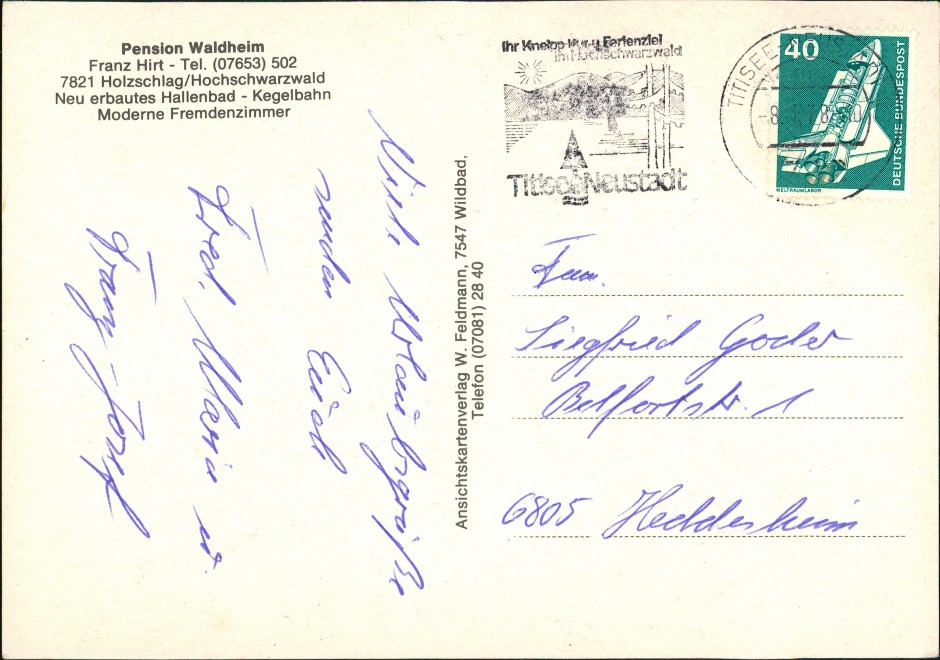 Pension Waldheim
Franz Hirt - Tel. (07653) 502
7821 Holzschlag/Hochschwarzwald
Neu erbautes Hallenbad - Kegelbahn
Moderne Fremdenzimmer
Viele Urlaubsgrüße
senden Euch
Fred, Maria u.
Franz Josef
Ansichtskartenverlag W. Feldmann, 7547 Wildbad,
Telefon (07081) 28 40
Ihr Kneipp-Kur-u. Ferienziel
im Hochschwarzwald
Titisee-Neustadt
TITISEE-NEUS
40
DEUTSCHE BUNDESPOST
WELTRAUMLABOR
Fam.
Siegfried Goder
Belfortstr. 1
6805 Heddesheim